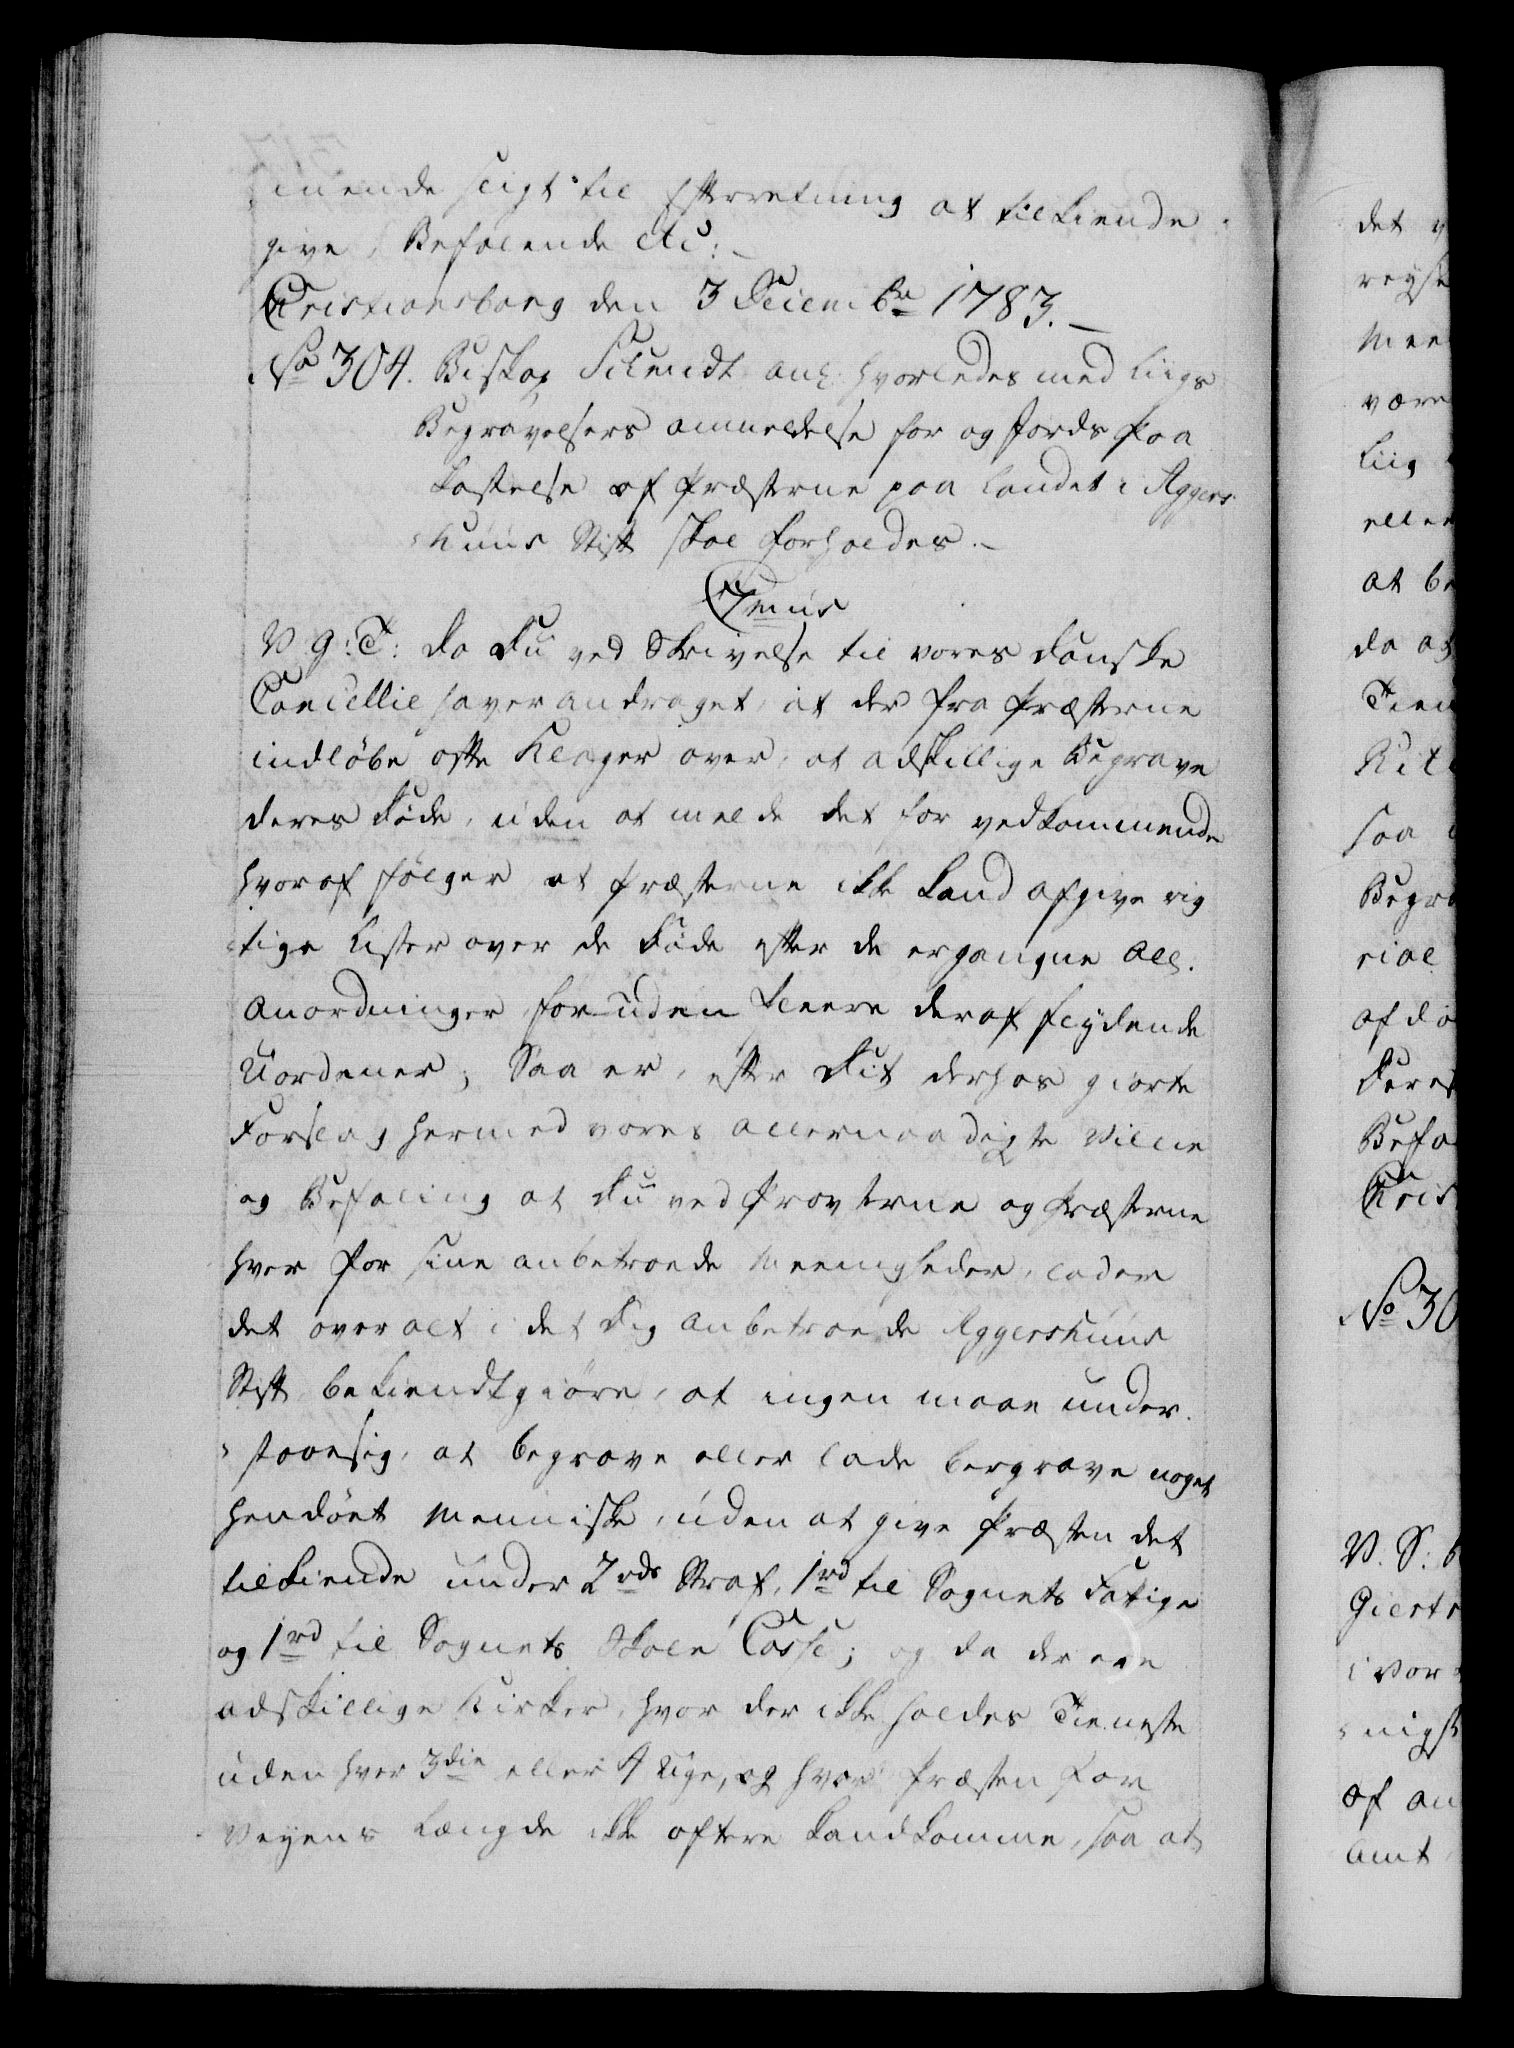 mende sligt til Efterretning at tilkiende
give, Befalende etc:
Christiansborg den 3 Decembr 1783.
No 304. Biskop Schmidt anl: hvorledes med Liigs
Begravelsers anmeldelse for og Jords Paa
kastelse af Præsterne paa Landet i Aggers
huus Stift skal forholdes.
C7mus
V G: T: Da Du ved Skrivelse til vores danske
Cancellie haver andraget, at der fra Præsterne
indløbe ofte Klager over, at adskillige Begrave
deres Døde, uden at melde det for vedkommende
hvoraf følger, at Præsterne ikke kand afgive rig
tige Lister over de Døde efter de ergangne All.
Anordninger foruden fleere deraf flydende
Uordener; Saa er, efter Dit derhos giorte
Forslag hermed vores allernaadigste Villie
og Befaling at Du ved Provsterne og Præsterne
hver for sine anbetroede Meenigheder, lader
det overalt i det Dig anbetroede Aggershuus
Stift bekiendtgiöre, at ingen maae under
staae sig, at begrave eller lade bergrave noget
hendöet Menniske, uden at give Præsten det
tilkiende under 2 rds Straf, 1 rd til Sognets Fattige
og 1 rd til Sognets Skole Casse; og da der ere
adskillige Kirker, hvor der ikke holdes Tieneste
uden hver 3die eller 4 Uge, og hvor Præsten for
Veyens Længde ikke oftere kand komme, saa at
det
Mee
være
Liig
eller
at be
da at
saa
Begra
rial
af
Deres
Befa
Chris
No 30
V. S:
i vor
af an
Amt